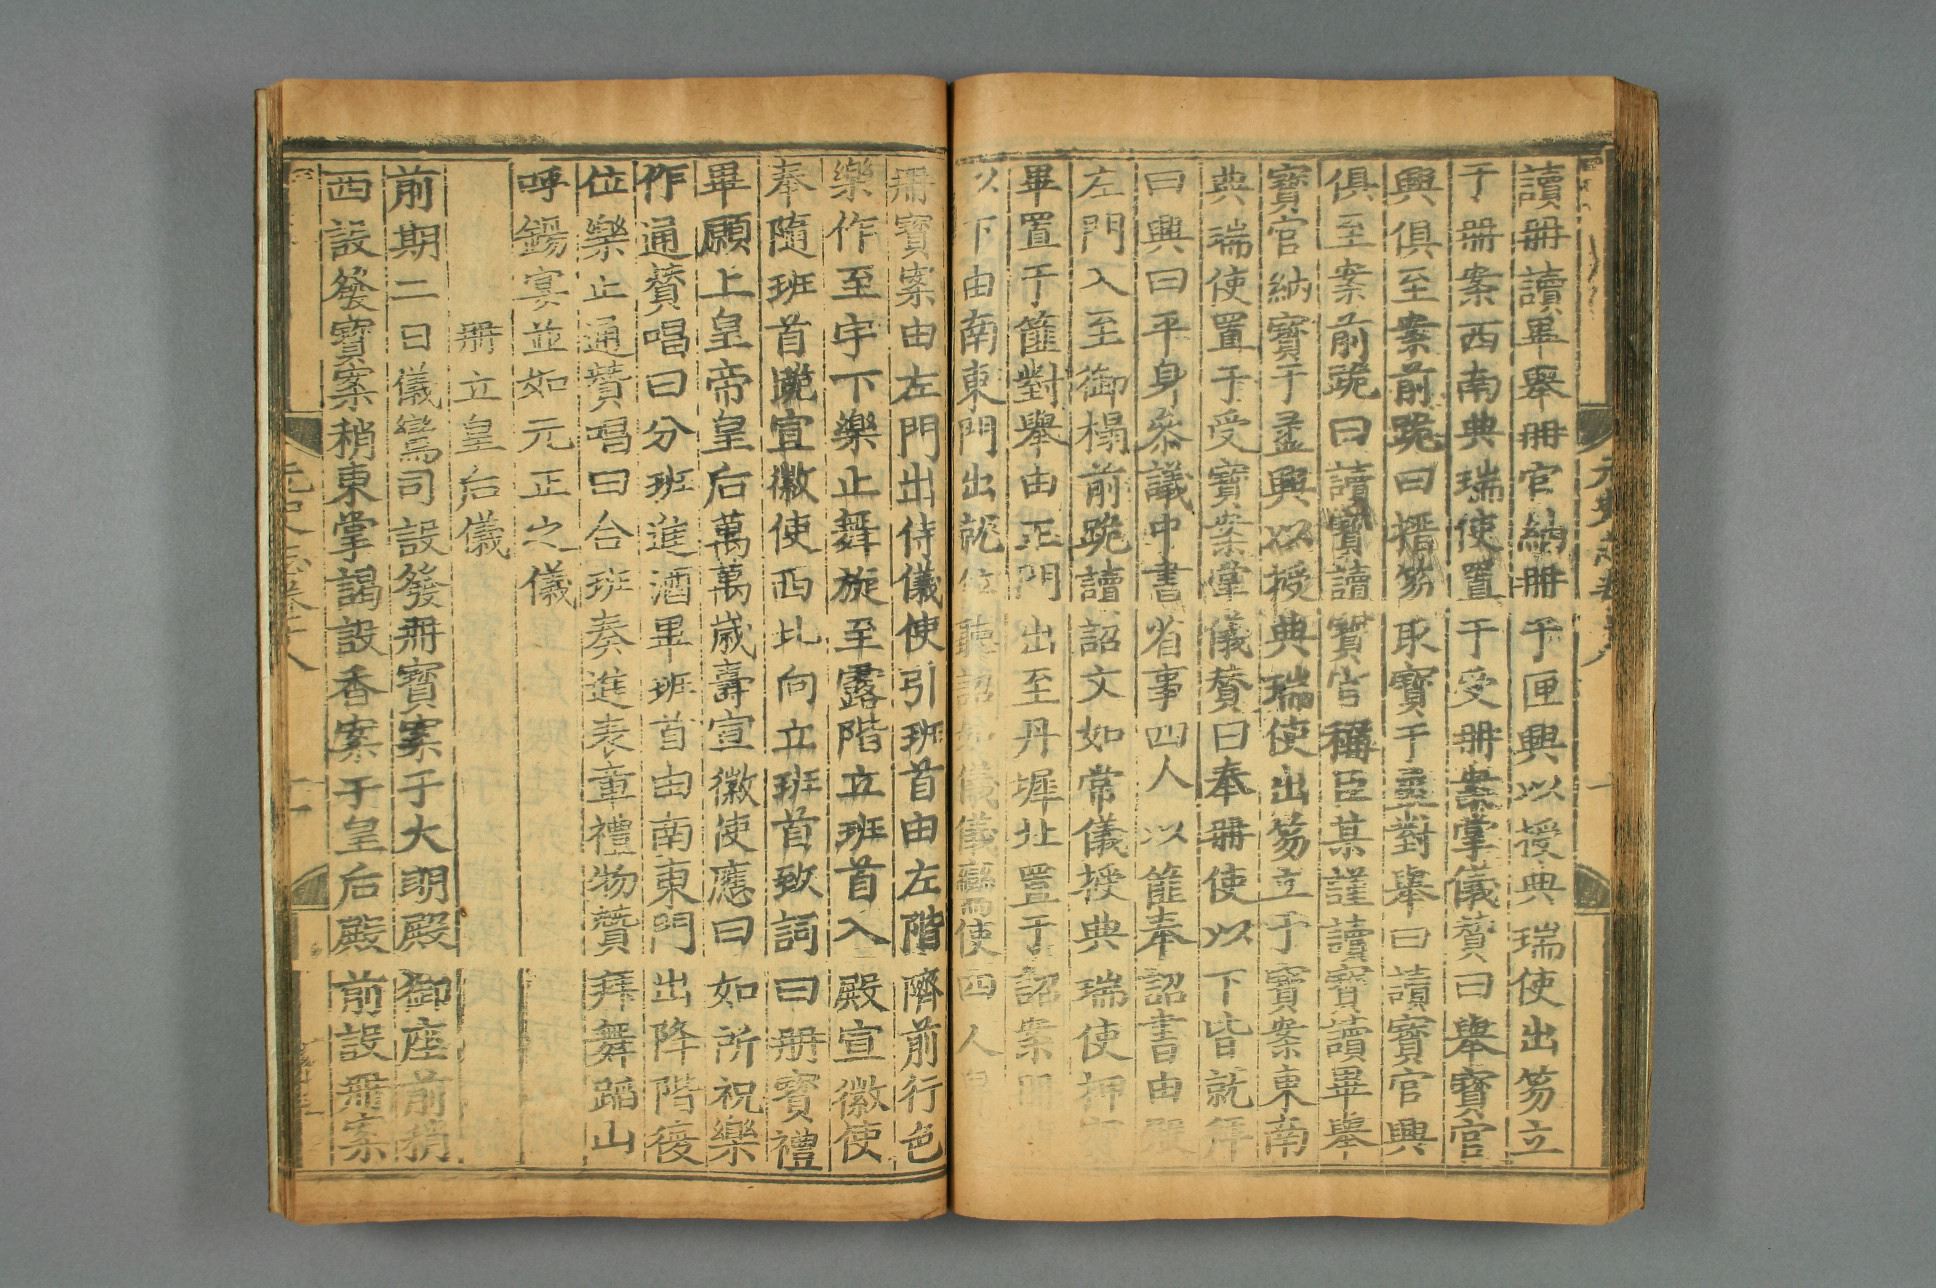 讀冊讀畢舉冊官納冊于匣興以授典瑞使出笏立
于冊案西南典瑞使置于受冊案掌儀贊曰舉寶官
興俱至案前跪曰搢笏取寶于盝對舉曰讀寶官興
俱至案前跪曰讀寶讀寶官稱臣某謹讀寶讀畢舉
寶官納寶于盝興以授典瑞使出笏立于寶案東南
典瑞使置于受寶案掌儀贊曰奉冊使以下皆就拜
曰興曰平身參議中書省事四人以篚奉詔書由殿
左門入至御榻前跪讀詔文如常儀授典瑞使押
畢置于篚對舉由正門出至丹墀北置于詔案
以下由南東門出就位聽詔如儀儀鸞使四人舁
冊寶案由左門出侍儀使引班首由左階隮前行色
樂作至宇下樂止舞旋至露階立班首入殿宣徽使
奉隨班首跪宣徽使西北向立班首致詞曰冊寶禮
畢願上皇帝皇后萬萬歲壽宣徽使應曰如所祝樂
作通贊唱曰分班進酒畢班首由南東門出降階復
位樂止通贊唱曰合班奏進表章禮物贊拜舞蹈山
呼錫宴並如元正之儀
冊立皇后儀
前期二日儀鸞司設發冊寶案于大明殿御座前稍
西設發寶案稍東掌謁設香案于皇后殿前設冊案